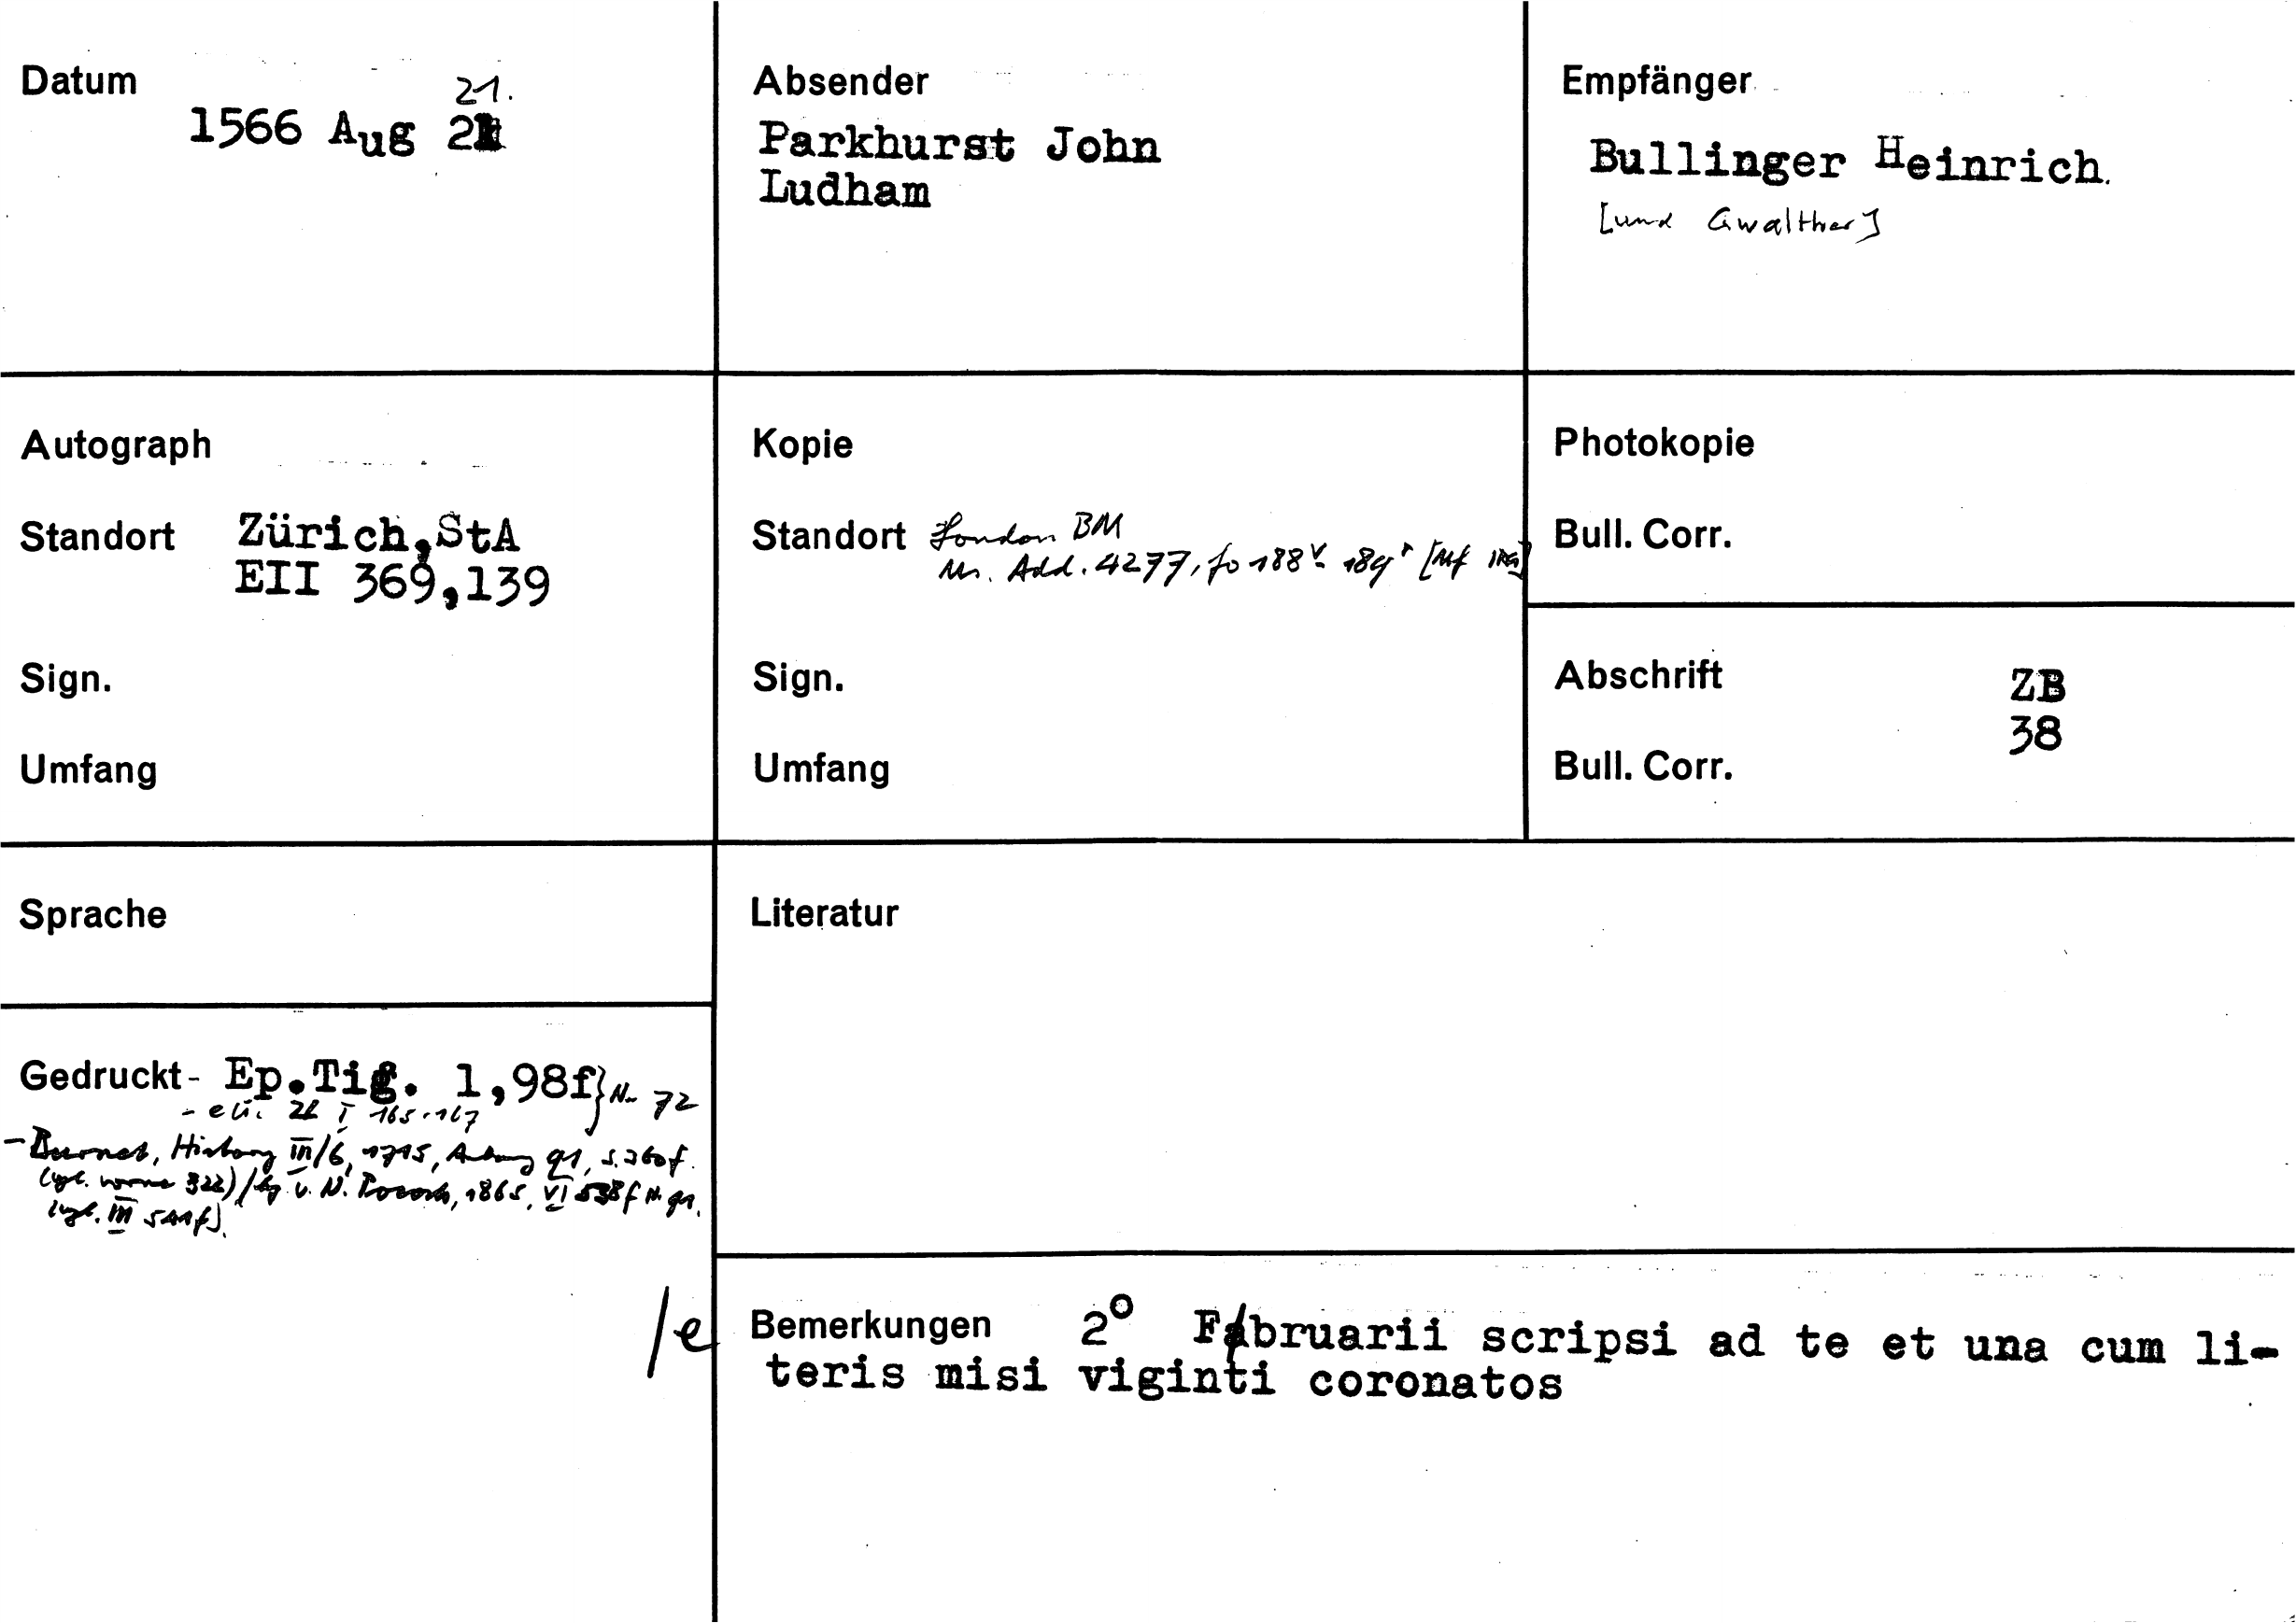 Datum
21.
1566 Aug 21
Absender
Parkhurst John
Ludham
Empfänger
Bullinger Heinrich.
[und Gwalther]
Autograph
Standort Zürich,StA
EII 369,139
Sign.
Umfang
Kopie
Standort London BM
Ms. Add. 4277, fo 188v-189r [Mf
Sign.
Umfang
Photokopie
Bull. Corr.
Abschrift ZB
38
Bull. Corr.
Sprache
Literatur
Gedruckt - Ep.Tig. 1,98f} Nr. 72
- I 165-167
- Burnet, History III/6, 1715, 91, S. 360f.
(vgl. vorne 322) / v. N. Pocock, 1865, VI 538f N. 91.
(vgl. III 511f).
/e
Bemerkungen 2o Fabruarii scripsi ad te et una cum li-
teris misi viginti coronatos